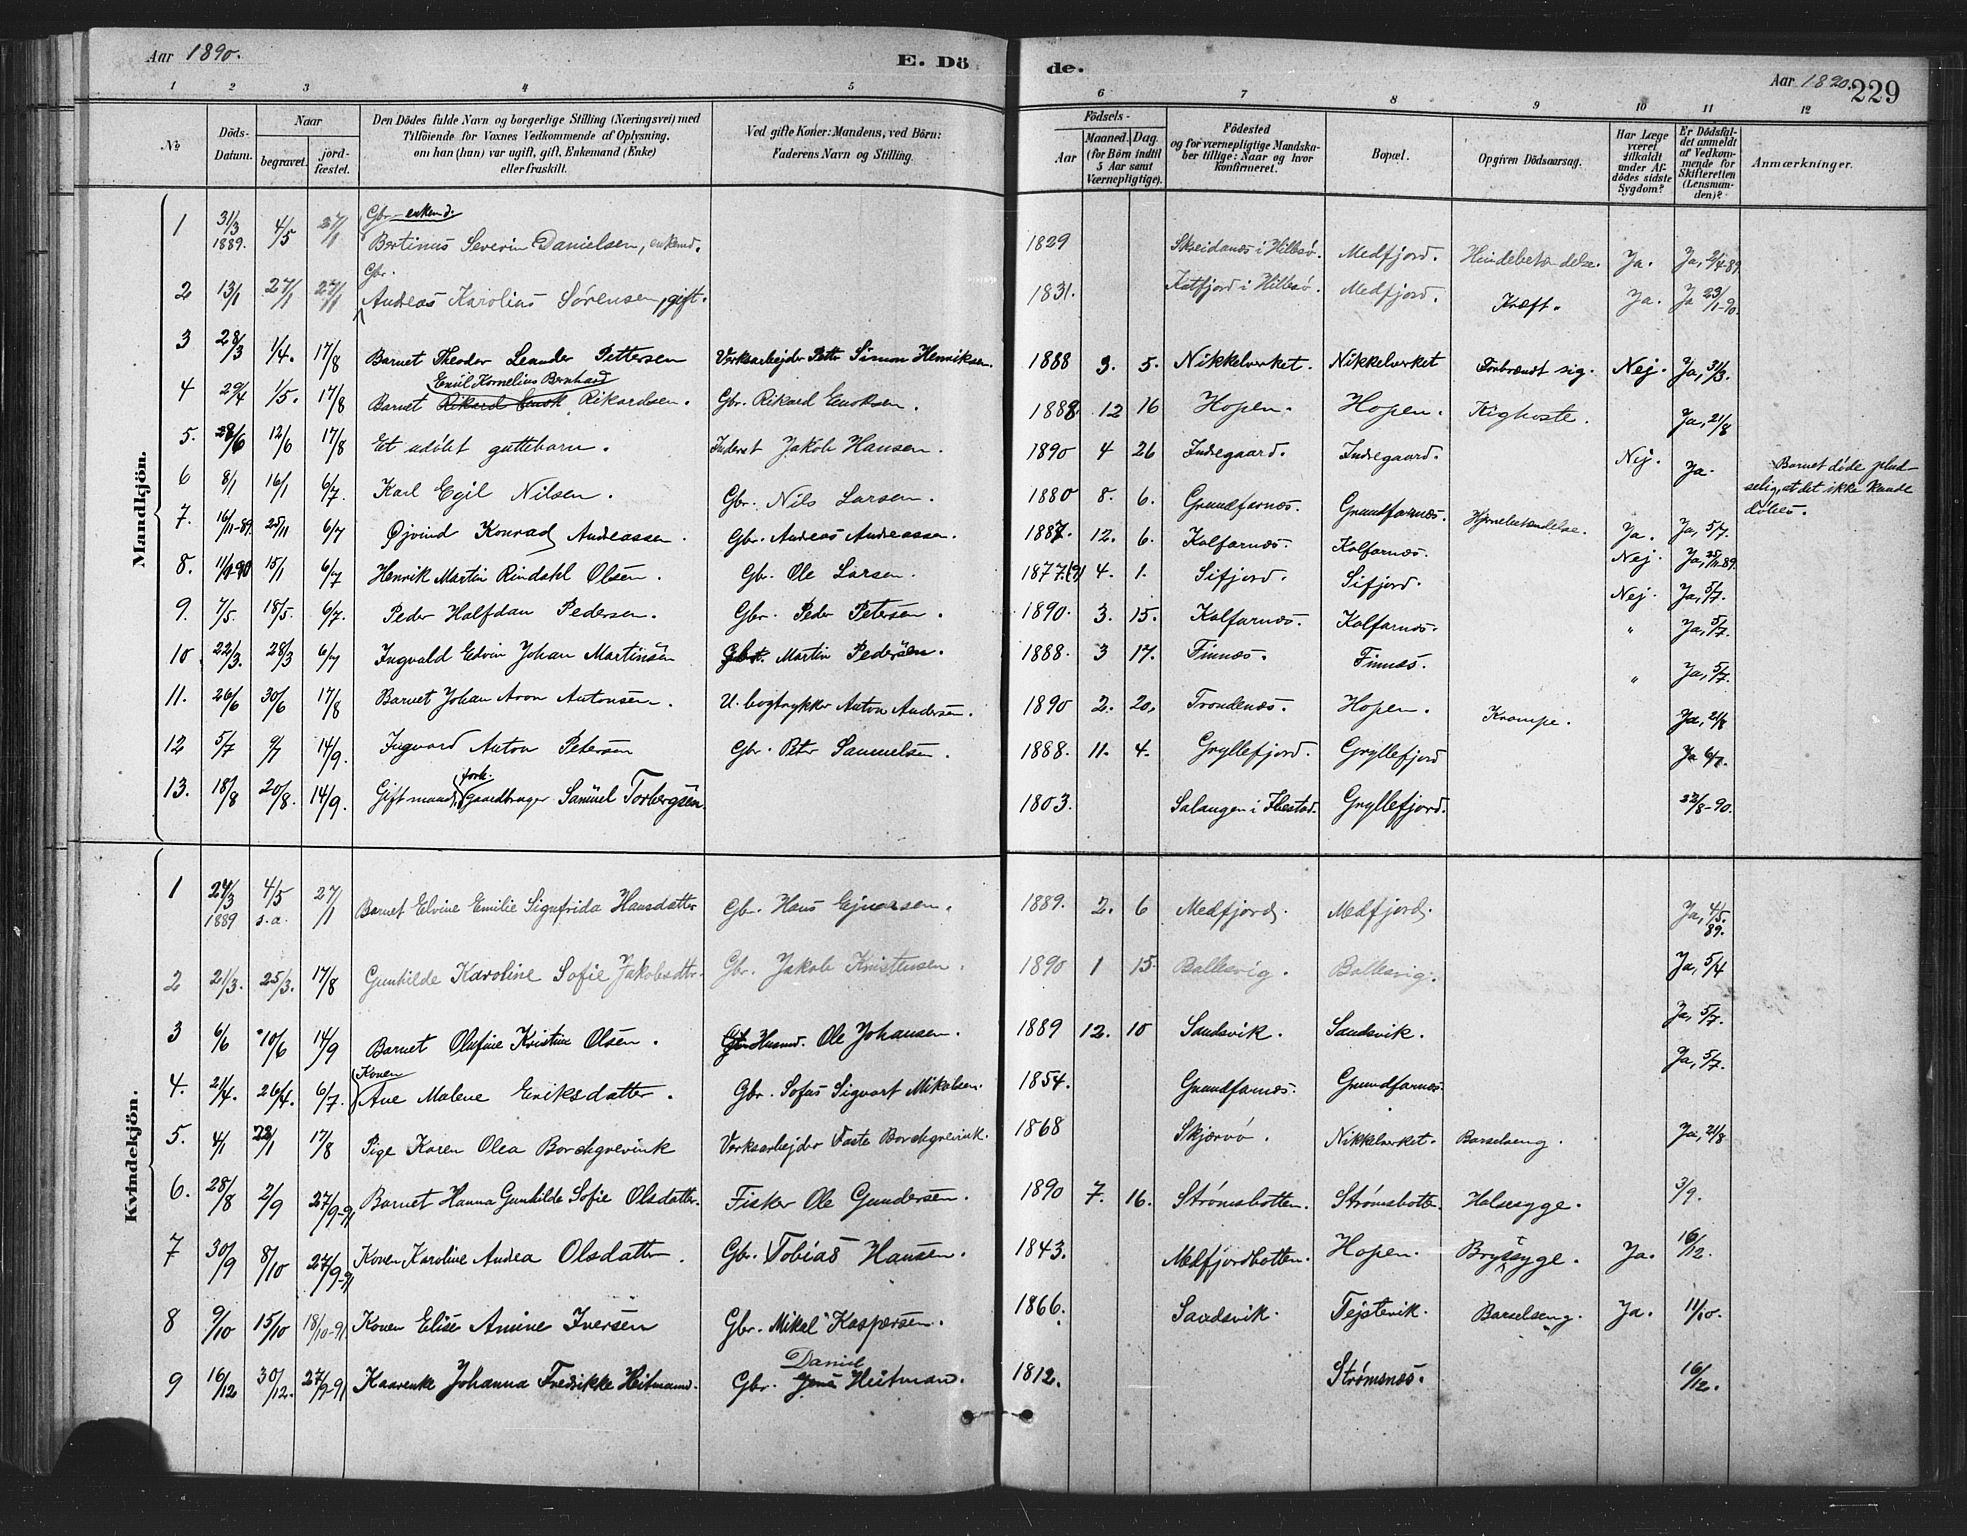 Aar 1890.
E. Dö
de.
Aar 1890.
229
1 2 3 4 5 6 7 8 9 10 11 12
№
Döds-Datum.
Naar
begravet.
jord-fæstet.
Den Dödes fulde Navn og borgerlige Stilling (Næringsvei) med
Tilföiende for Voxnes Vedkommende af Oplysning,
om han (hun) var ugift, gift, Enkemand (Enke)
eller fraskilt.
Ved gifte Koner: Mandens, ved Börn:
Faderens Navn og Stilling.
Födsels-
Aar
Maaned. Dag.
(for Börn indtil
5 Aar samt
Værnepligtige).
Födested
og for værnepligtige Mandska-
ber tillige: Naar og hvor
konfirmeret.
Bopæl.
Opgiven Dödsaarsag.
Har Læge
været
tilkaldt
under Af-
dödes sidste
Sygdom?
Er Dödsfal-
det anmeldt
af Vedkom-
mende for
Skifteretten
(Lensman-
den)?
Anmærkninger.
Mandkjön.
1 31/3 1889. 4/5 27/1 Gbr. enkemd. Bertinus Severin Danielsen, enkemd. 1829 Skreidanes i Hillesø. Medfjord. Hindebetændelse. Ja. Ja, 2/4-89.
2 13/1 27/1 27/1 Gbr. Andreas Karolius Sørensen, gift. 1831. Katfjord i Hillesø. Medfjord. Kræft. Ja. Ja 23/1-90.
3 28/3 1/4. 17/8 Barnet Theodor Leander Pettersen Verksarbejder Pettr Simon Henriksen. 1888 3. 5. Nikkelverket. Nikkelverket Forbrændt sig. Nej. Ja, 31/3.
4 29/4 1/5. 17/8 Barnet Emil Kornelius Bernhard Rikard Enok Rikardsen. Gbr. Rikard Enoksen. 1888 12 16 Hopen. Hopen. Kighoste. Ja, 21/8
5. 28/6 12/6 17/8 Et udøbt guttebarn. Inderst Jakob Hansen. 1890 4 26 Indregaard. Indregaard. Nej. Ja. Barnet døde plud-
selig, at det ikke kunde
døbes.
6 8/1 16/1 6/7. Karl Egil Nilsen. Gbr. Nils Larsen. 1880 8. 6. Grundfarnes. Grundfarnes. Hjernebetændelse. Ja. Ja, 5/7.
7. 16/11-89. 25/11 6/7 Øjvind Konrad Andreassen. Gbr. Andreas Andreassen. 1887. 12. 6. Kolfarnes. Kolfarnes. Nej. Ja, 25/11-89.
8. 11/1-90 15/1 6/7 Henrik Martin Rindahl Olsen. Gb. Ole Larsen. 1877.(?) 4. 1. Sifjord. Sifjord. Nej. Ja, 5/7.
9. 7/5. 18/5. 6/7. Peder Halfdan Pedersen. Gbr. Peder Petersen. 1890. 3. 15. Kolfarnes. Kolfarnes. " Ja, 5/7.
10 22/3. 28/3 6/7 Ingvald Edvin Johan Martinsen Gbr. Martin Pedersen. 1888. 3 17. Finnes. Finnes. " Ja, 5/7.
11. 26/6 30/6 17/8 Barnet Johan Aron Antonsen. U. bogtrykker Anton Andersen. 1890 2. 20. Trondenes. Hopen. Krampe. Ja, 21/8
12 5/7 9/7 14/9. Ingvard Anton Petersen Gb. Petr Samuelsen. 1888. 11. 4. Gryllefjord. Gryllefjord Ja 6/7.
13. 18/8 20/8. 14/9. Gift mand, forh. Gaardbruger Samuel Torbergsen. 1803. Salangen i Ibestad. Gryllefjord. 22/8-90.
Kvindekjön.
1 24/3 1889 4/5 s. a. 27/1 Barnet Elvine Emilie Signfrida Hansdatter Gb. Hans Ejnarsen. 1889. 2. 6 Medfjord. Medfjord. Ja, 4/5. 89.
2 21/3. 25/3. 17/8 Gunhilde Karoline Sofie Jakobsdtr. Gbr. Jakob Kristensen. 1890 1 15. Ballesvig. Ballesvig. Ja, 5/4
3 6/6 10/6 14/9 Barnet Olufine Kristine Olsen. Gbr. Husmd. Ole Johansen. 1889 12. 10 Sandsvik. Sandsvik. Ja, 5/7.
4. 21/4. 26/4. 6/7. Konen Ane Malene Eriksdatter. Gbr. Sofus Sigvart Mikalsen. 1854. Grundfarnes. Grundfarnes. Ja, 5/7.
5. 4/1 23/1 17/8 Pige Karen Olea Borchgrevink Verksarbejder Faste Borchgrevink. 1868 Skjervø. Nikkelverket. Barselseng. Ja, 21/8
6. 28/8 2/9 27/9-91 Barnet Hanna Gunhilde Sofie Olsdatter. Fisker Ole Gundersen. 1890 7. 16. Strømsbotten. Strømsbotten. Halssyge. 3/9.
7 30/9 8/10 27/9-91 Konen Karoline Andrea Olsdatter. Gb. Tobias Hansen. 1843. Medfjordbotten. Hopen. Brystsyge. Ja. 16/12.
8 9/10 15/10 18/10-91 Konen Elise Amine Iversen Gbr. Mikal Kaspersen. 1866. Sandsvik. Tejstevik. Barselseng. Ja. 11/10.
9 16/12 30/12. 27/9-91 Kaarenke Johanna Fredrikke Heitmand. Gbr. Daniel Jens Heitman. 1812. Strømsnes. 16/12.